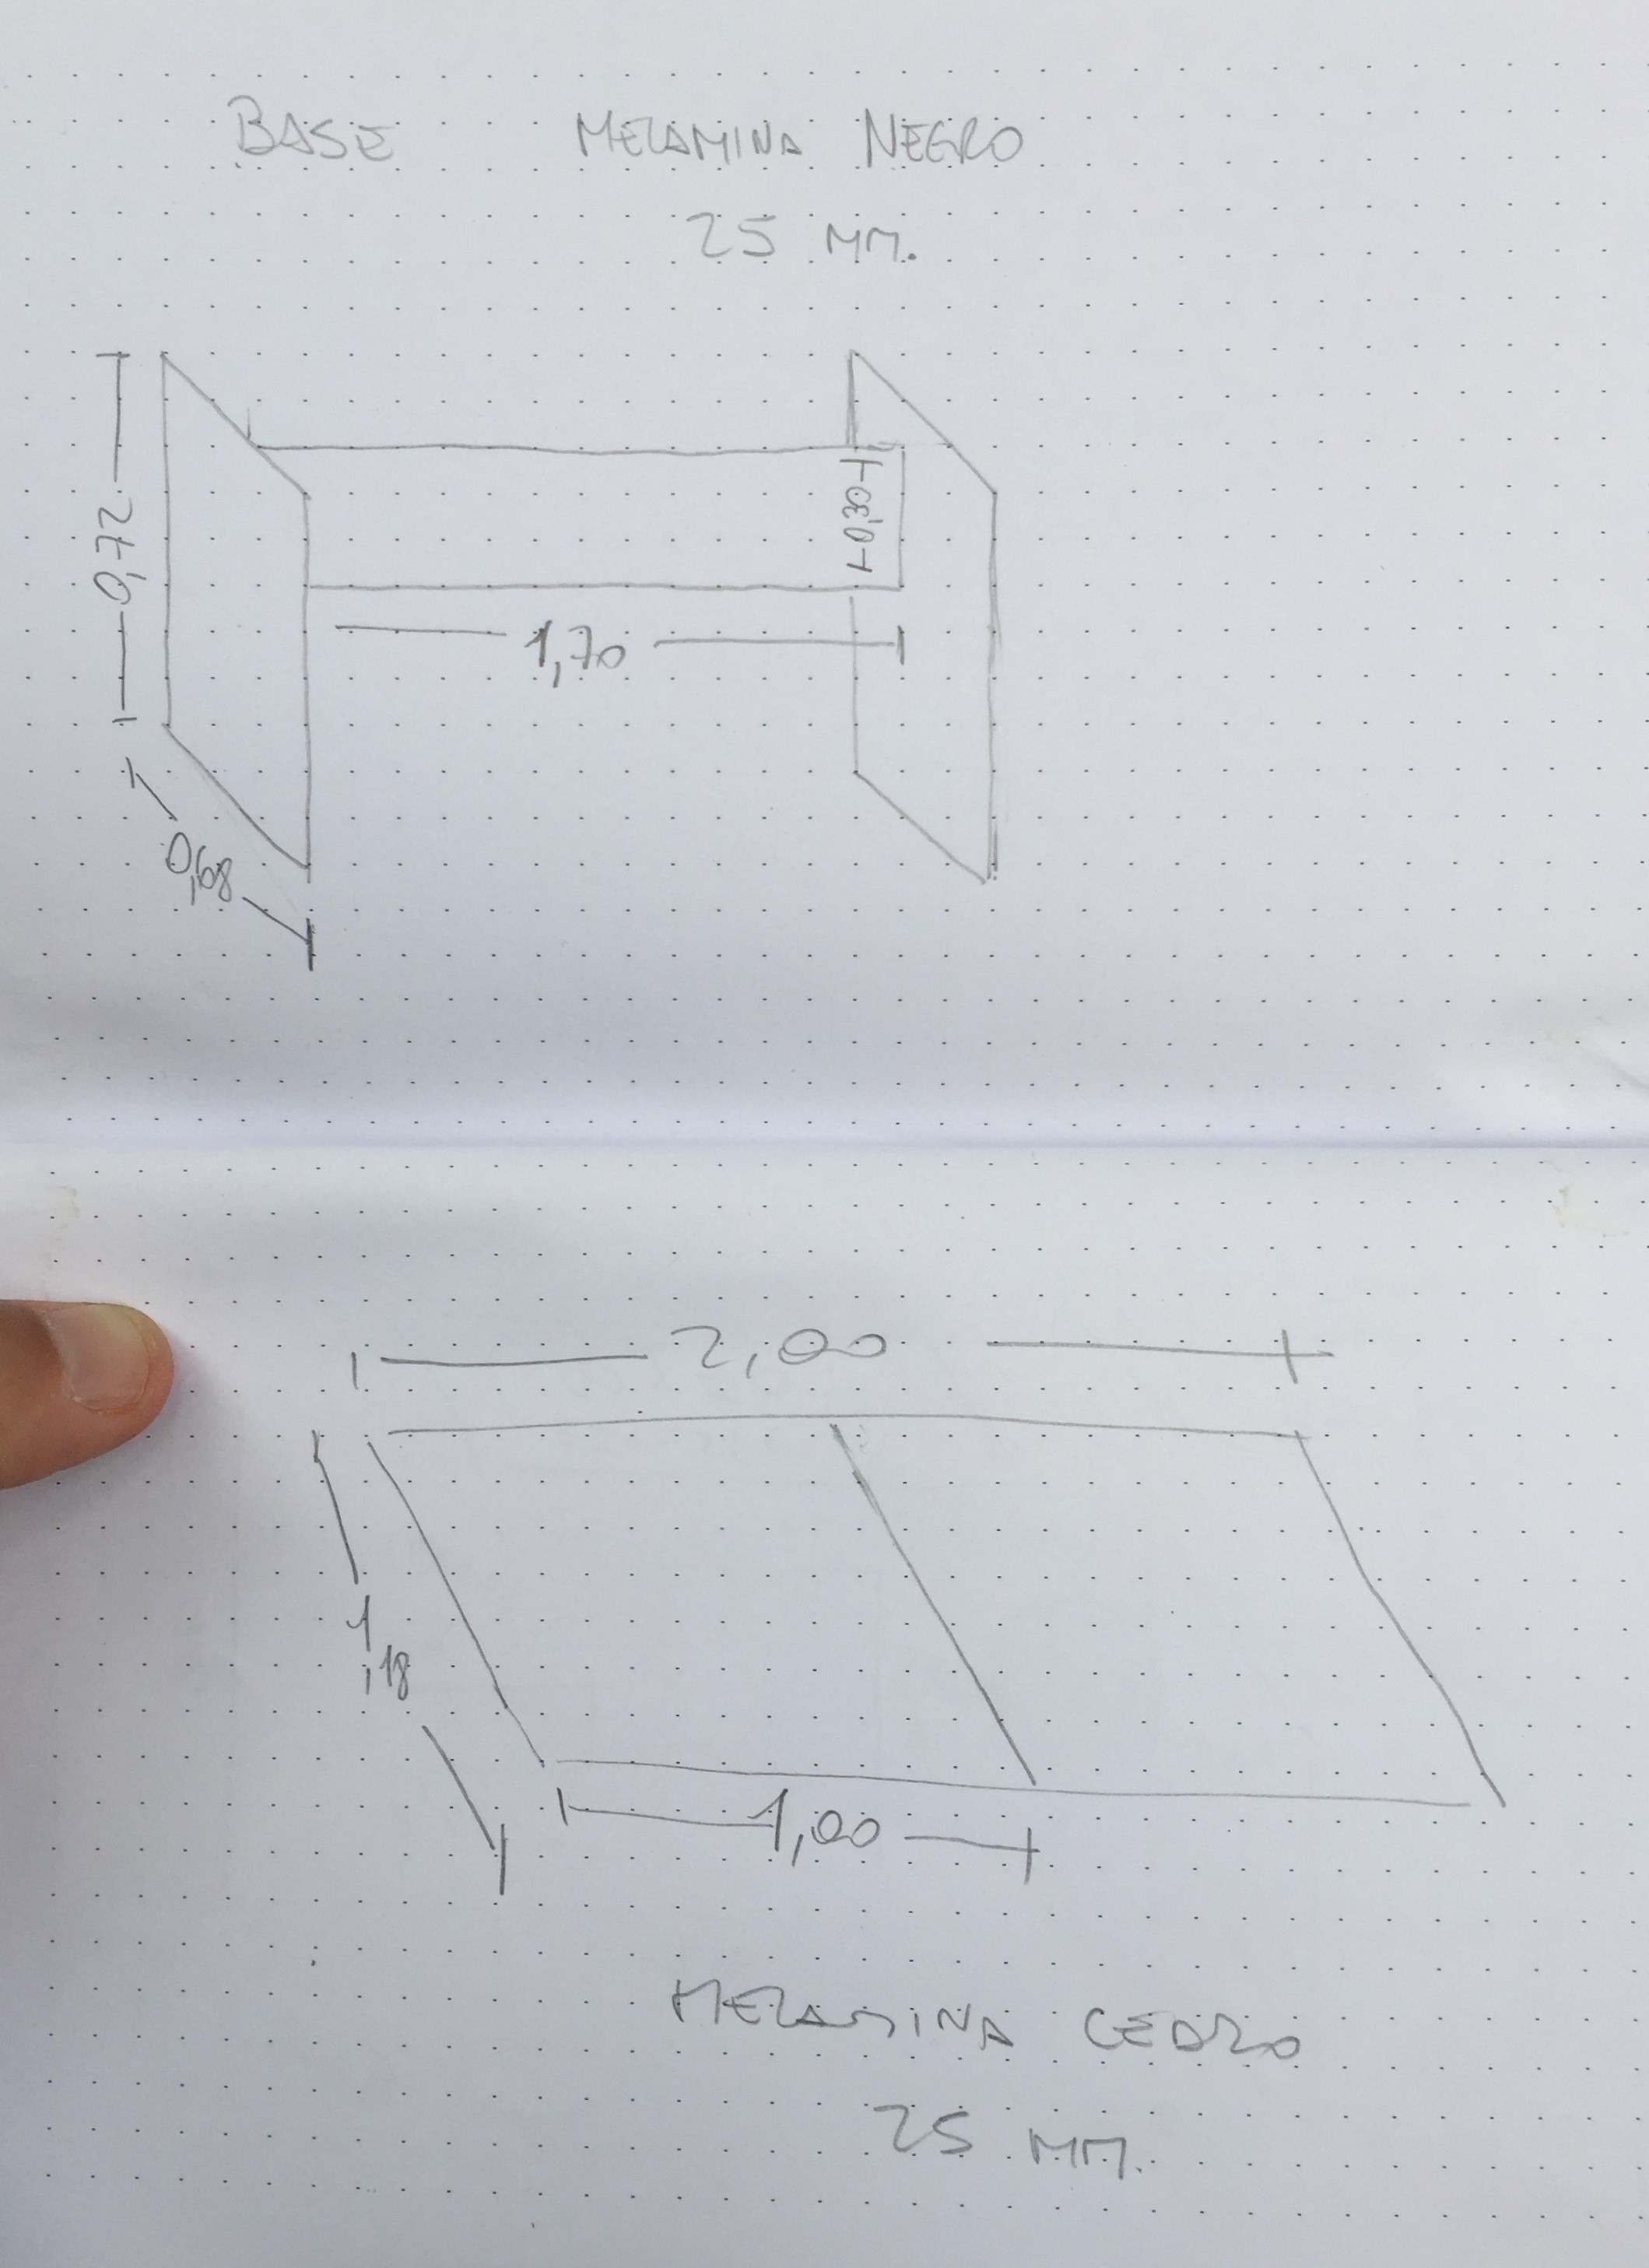 BASE MELAMINA NEGRO
25 MM.
0,72
0,30
1,70
0,68
2,00
1,18
1,00
MELAMINA CEDRO
25 MM.